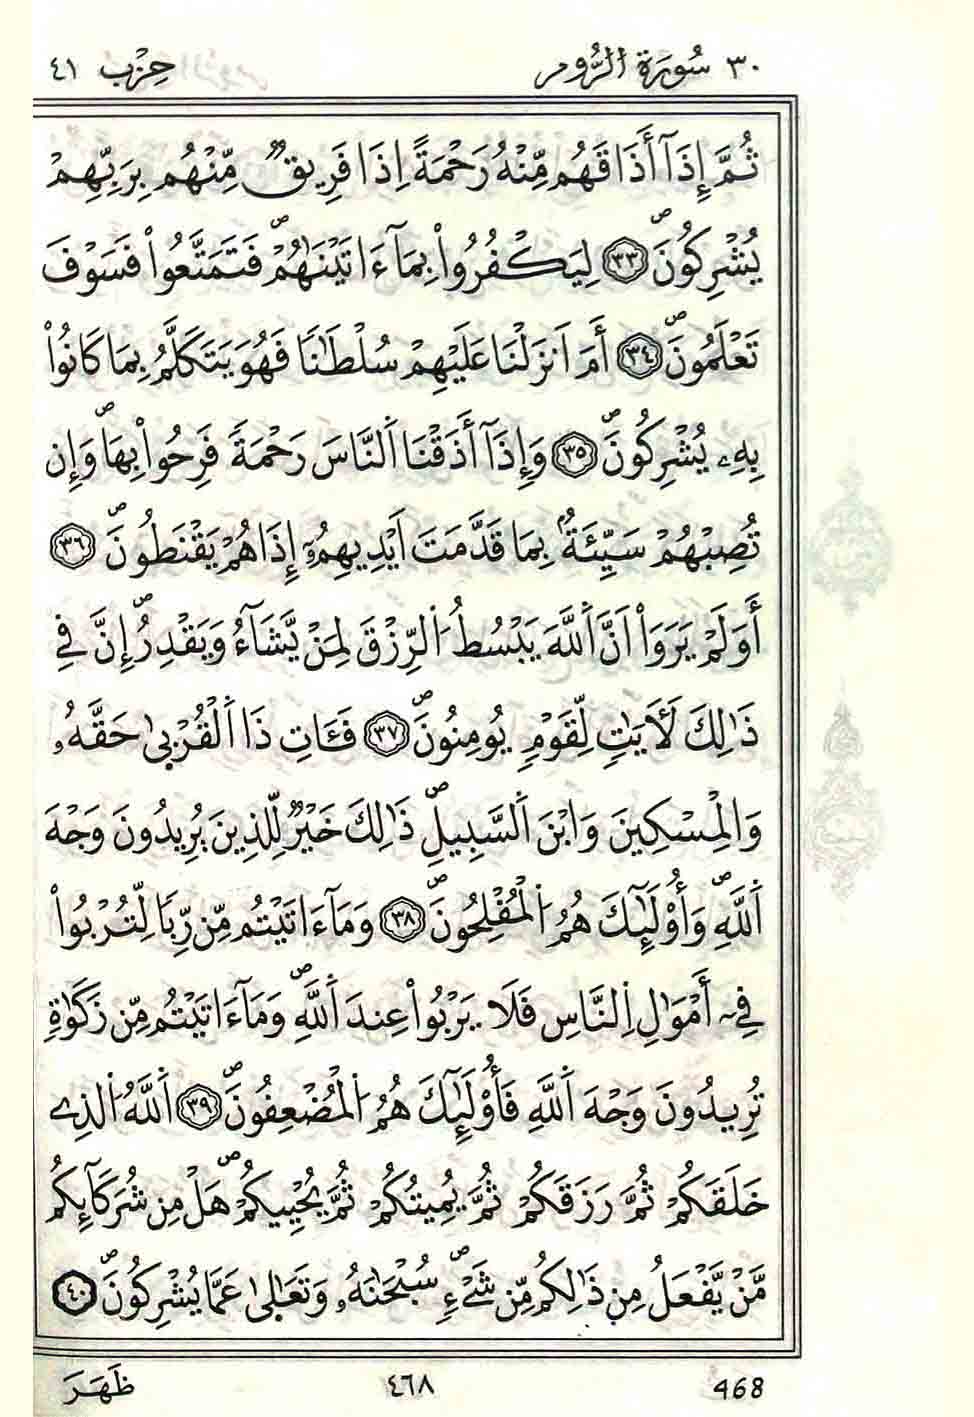 ٣٠ سُورَةُ الرُّومِ حِزْب ٤١
ثُمَّ إِذَآ أَذَاقَهُم مِّنْهُ رَحْمَةً اِذَا فَرِيقٌ مِّنْهُم بِرَبِّهِمْ
يُشْرِكُونَۖ ٣٣ لِيَكْفُرُواْ بِمَآ ءَاتَيْنَٰهُمْۖ فَتَمَتَّعُواْ فَسَوْفَ
تَعْلَمُونَۖ ٣٤ أَمَ اَنزَلْنَا عَلَيْهِمْ سُلْطَٰنًا فَهُوَ يَتَكَلَّمُ بِمَا كَانُواْ
بِهِۦ يُشْرِكُونَۖ ٣٥ وَإِذَآ أَذَقْنَا اَلنَّاسَ رَحْمَةً فَرِحُواْ بِهَاۖ وَإِن
تُصِبْهُمْ سَيِّئَةُۢ بِمَا قَدَّمَتَ اَيْدِيهِمُۥٓ إِذَا هُمْ يَقْنَطُونَۖ ٣٦
أَوَلَمْ يَرَوَاْ اَنَّ اَللَّهَ يَبْسُطُ اُلرِّزْقَ لِمَنْ يَّشَآءُ وَيَقْدِرُۖ إِنَّ فِے
ذَٰلِكَ لَأٓيَٰتٖ لِّقَوْمٖ يُومِنُونَۖ ٣٧ فَـَٔاتِ ذَا اَلْقُرْبىٰ حَقَّهُۥ
وَالْمِسْكِينَ وَابْنَ اَلسَّبِيلِۖ ذَٰلِكَ خَيْرٌ لِّلذِينَ يُرِيدُونَ وَجْهَ
اَللَّهِۖ وَأُوْلَٰٓئِكَ هُمُ اُلْمُفْلِحُونَۖ ٣٨ وَمَآ ءَاتَيْتُم مِّن رِّباٗ لِّتُرْبُواْ
فِےٓ أَمْوَٰلِ اِلنَّاسِ فَلَا يَرْبُواْ عِندَ اَللَّهِۖ وَمَآ ءَاتَيْتُم مِّن زَكَوٰةٖ
تُرِيدُونَ وَجْهَ اَللَّهِ فَأُوْلَٰٓئِكَ هُمُ اُلْمُضْعِفُونَۖ ٣٩ اَللَّهُ اُلذِے
خَلَقَكُمْ ثُمَّ رَزَقَكُمْ ثُمَّ يُمِيتُكُمْ ثُمَّ يُحْيِيكُمْۖ هَلْ مِن شُرَكَآئِكُم
مَّنْ يَّفْعَلُ مِن ذَٰلِكُم مِّن شَےْءٖۖ سُبْحَٰنَهُۥ وَتَعَالىٰ عَمَّا يُشْرِكُونَۖ ٤٠
ظَهَرَ ٤٦٨ 468